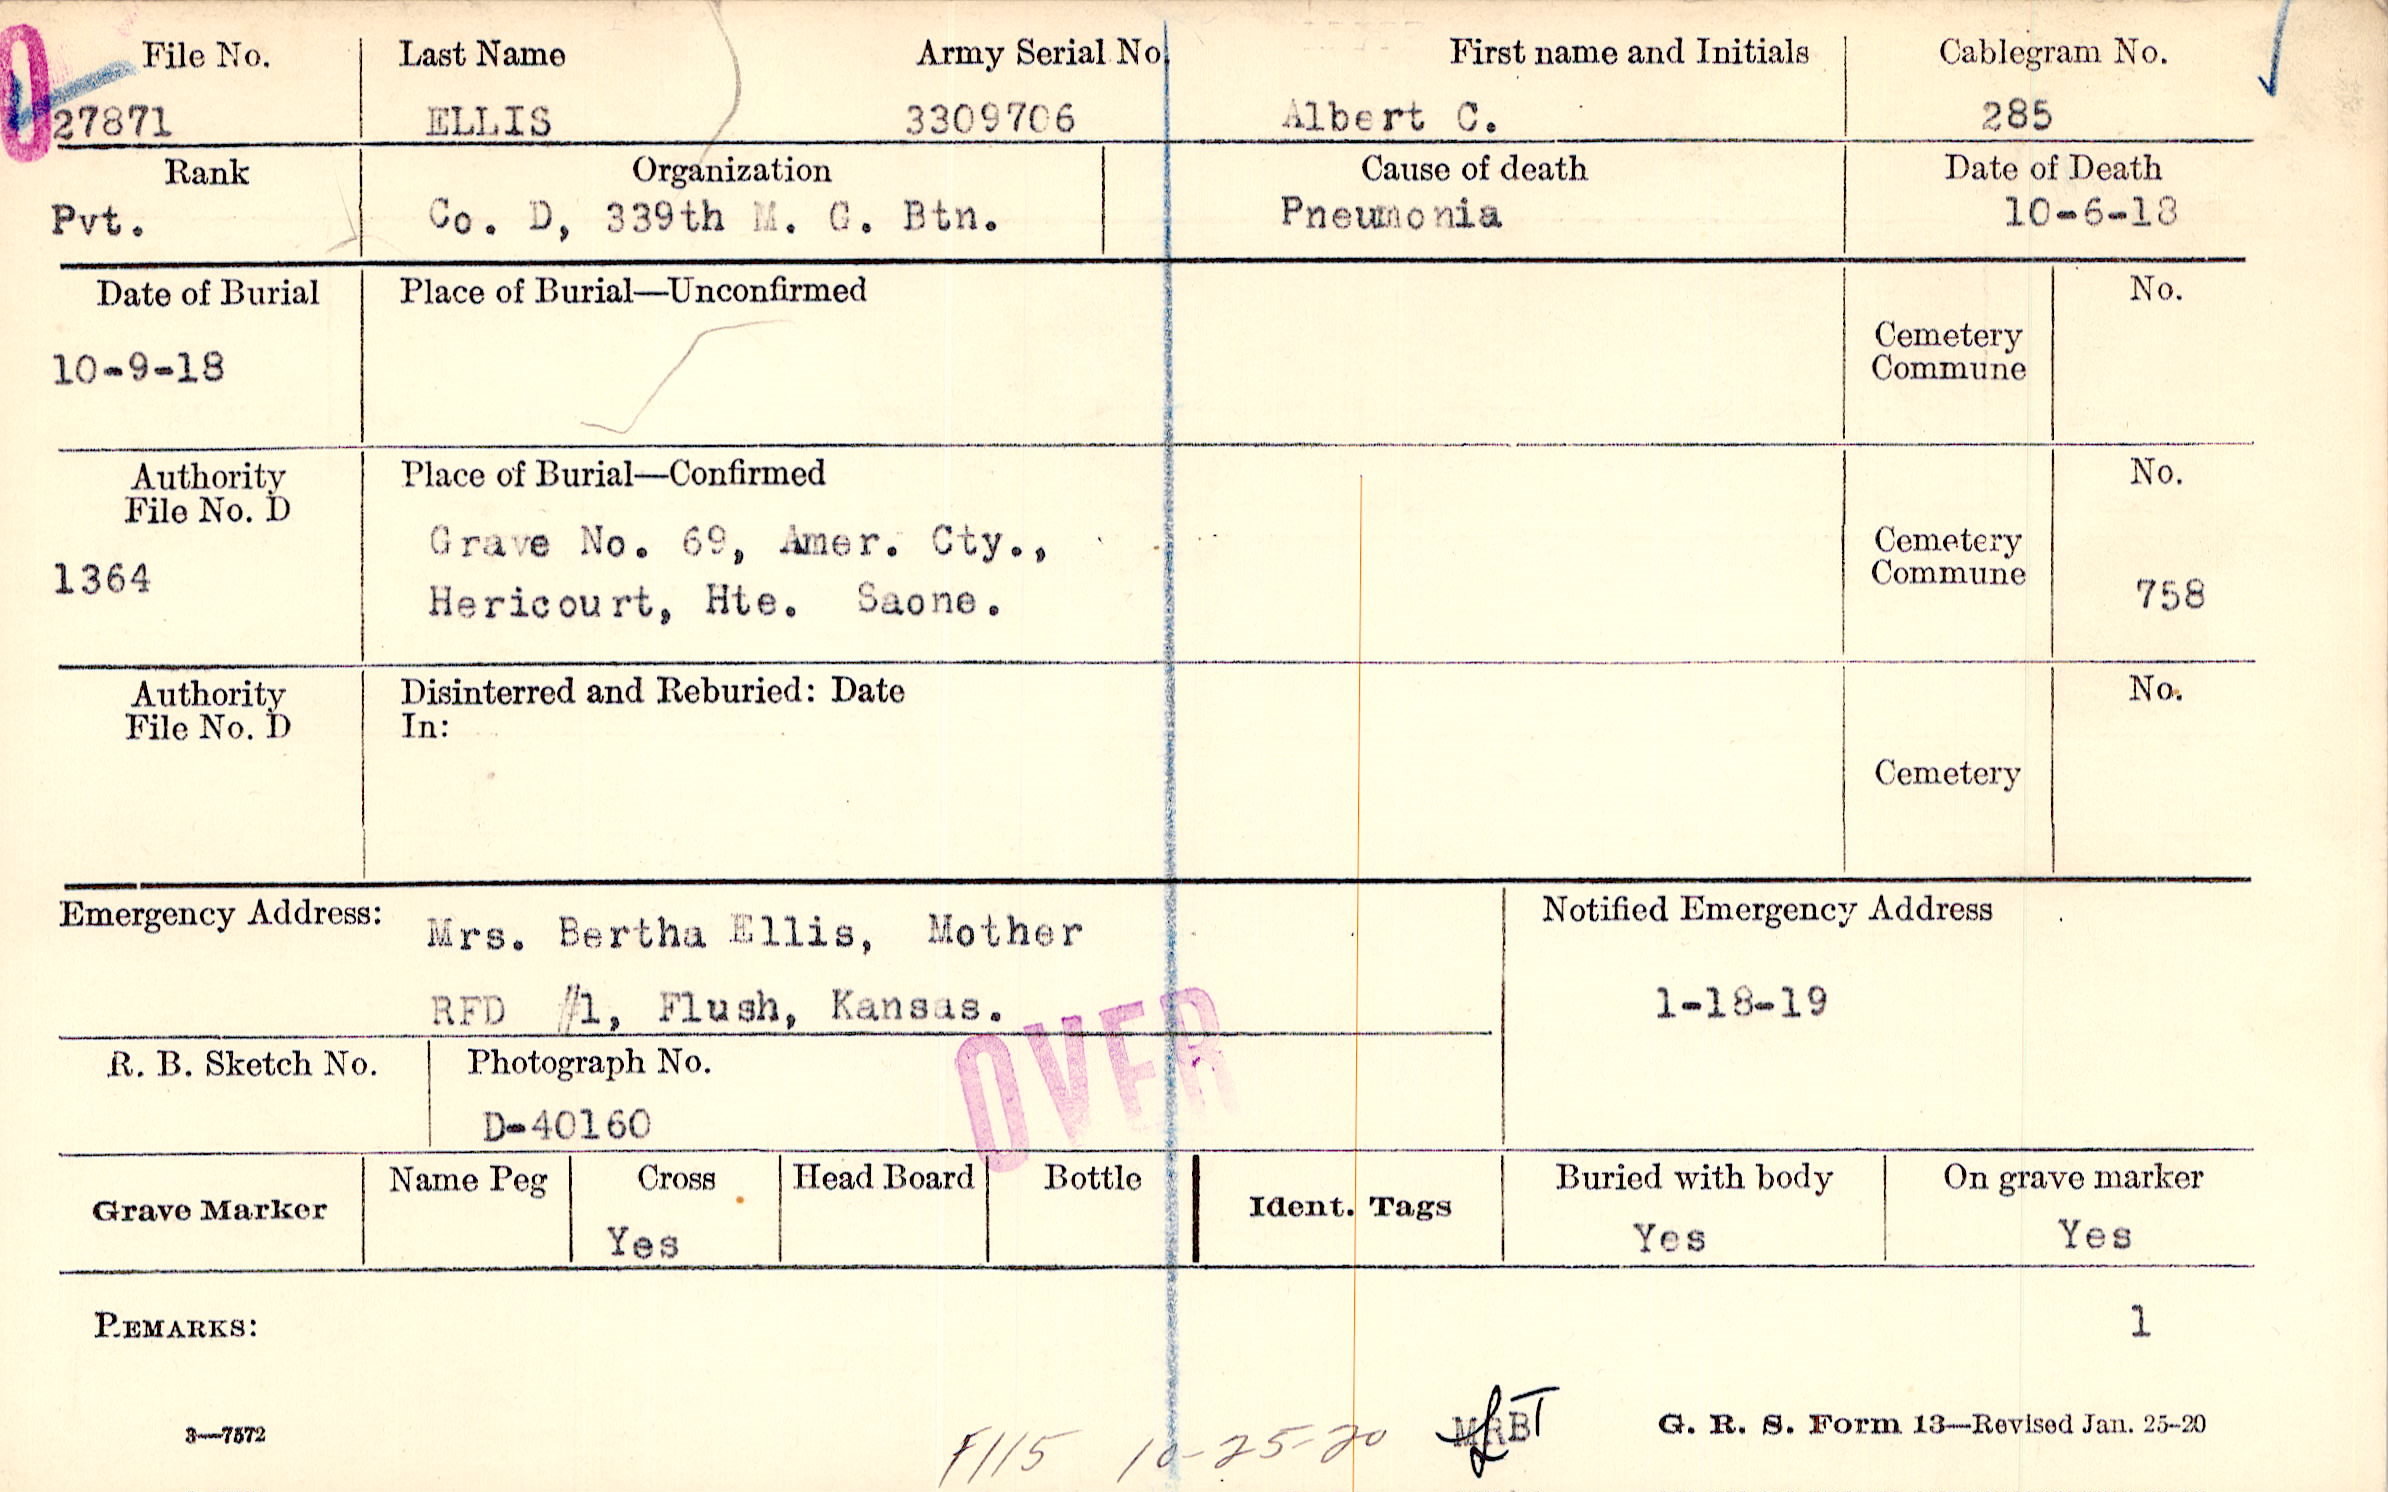 File No. Last Name Army Serial No. First name and Initials Cablegram No.
27871 ELLIS 3309706 Albert C. 285
Rank Organization Cause of death Date of Death
Pvt. Co. D, 339th M. G. Btn. Pneumonia 10-6-18
Date of Burial Place of Burial—Unconfirmed No.
Cemetery
Commune
10-9-18
Authority Place of Burial—Confirmed No.
File No. D
Grave No. 69, Amer. Cty., Cemetery
Commune
1364 Hericourt, Hte. Saone. 758
Authority Disinterred and Reburied: Date No.
File No. D In:
Cemetery
Emergency Address: Mrs. Bertha Ellis, Mother Notified Emergency Address
RFD #1, Flush, Kansas. 1-18-19
OVER
R. B. Sketch No. Photograph No.
D-40160
Grave Marker Name Peg Cross Head Board Bottle Ident. Tags Buried with body On grave marker
Yes Yes Yes
REMARKS: 1
3—7572 F115 10-25-20 MRB G. R. S. Form 13—Revised Jan. 25-20